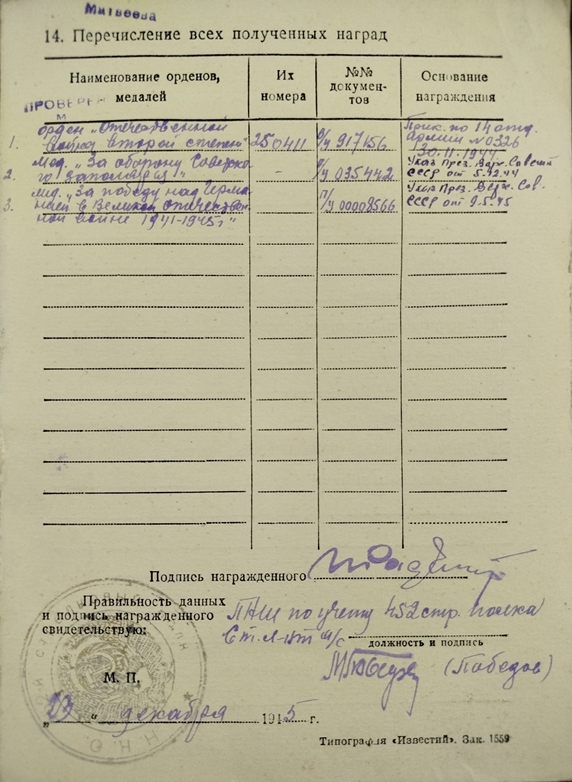 Матвеева
14. Перечисление всех полученных наград
Наименование орденов, медалей
Их номера
№№ документов
Основание награждения
ПРОВЕРЕН
1. орден „Отечественной войны второй степени" 250411 917156 Прик. по 14 отд. Армии № 0326 30.11.1944
2. мед. „За оборону Советско-
го Заполярья" - 035442 Указ През. Верх. Совета СССР от 5.12.44
3. мед. „За победу над Герма-
нией в Великой отечествен-
ной войне 1941-1945г" п/у 00008566 Указ През. Верх. Сов. СССР от 9.5.45
Подпись награжденного
Правильность данных
и подпись награжденного
свидетельствую:
ПНШ по учету 452 стр. полка
Ст. Л-нт а/с
должность и подпись
(Победов)
М. П.
„23" декабря 1945 г.
Типография «Известий». Зак. 1559